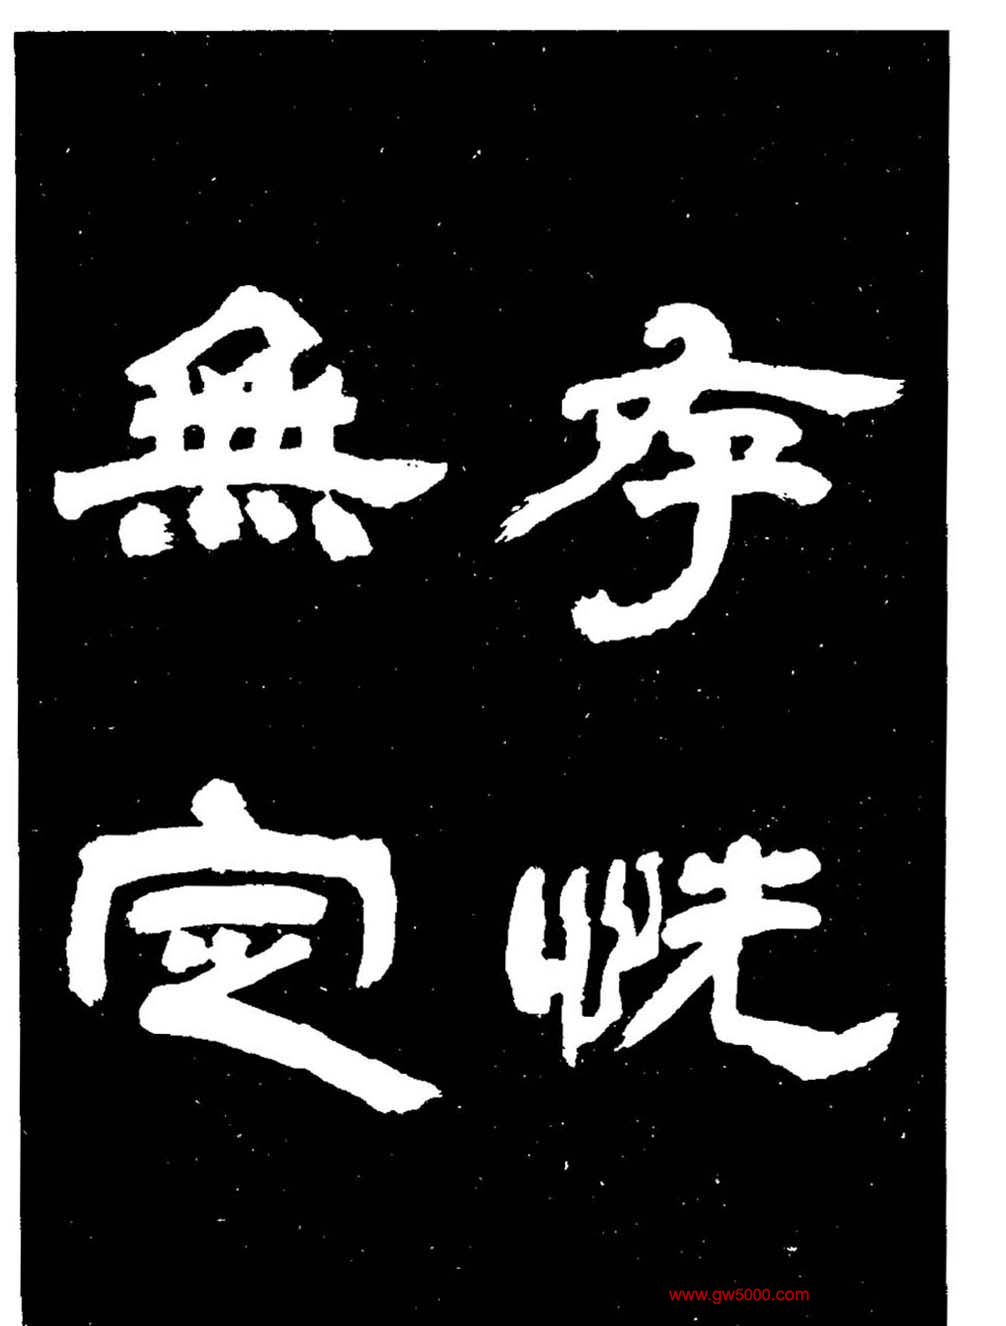 恍
無定
www.gw5000.com